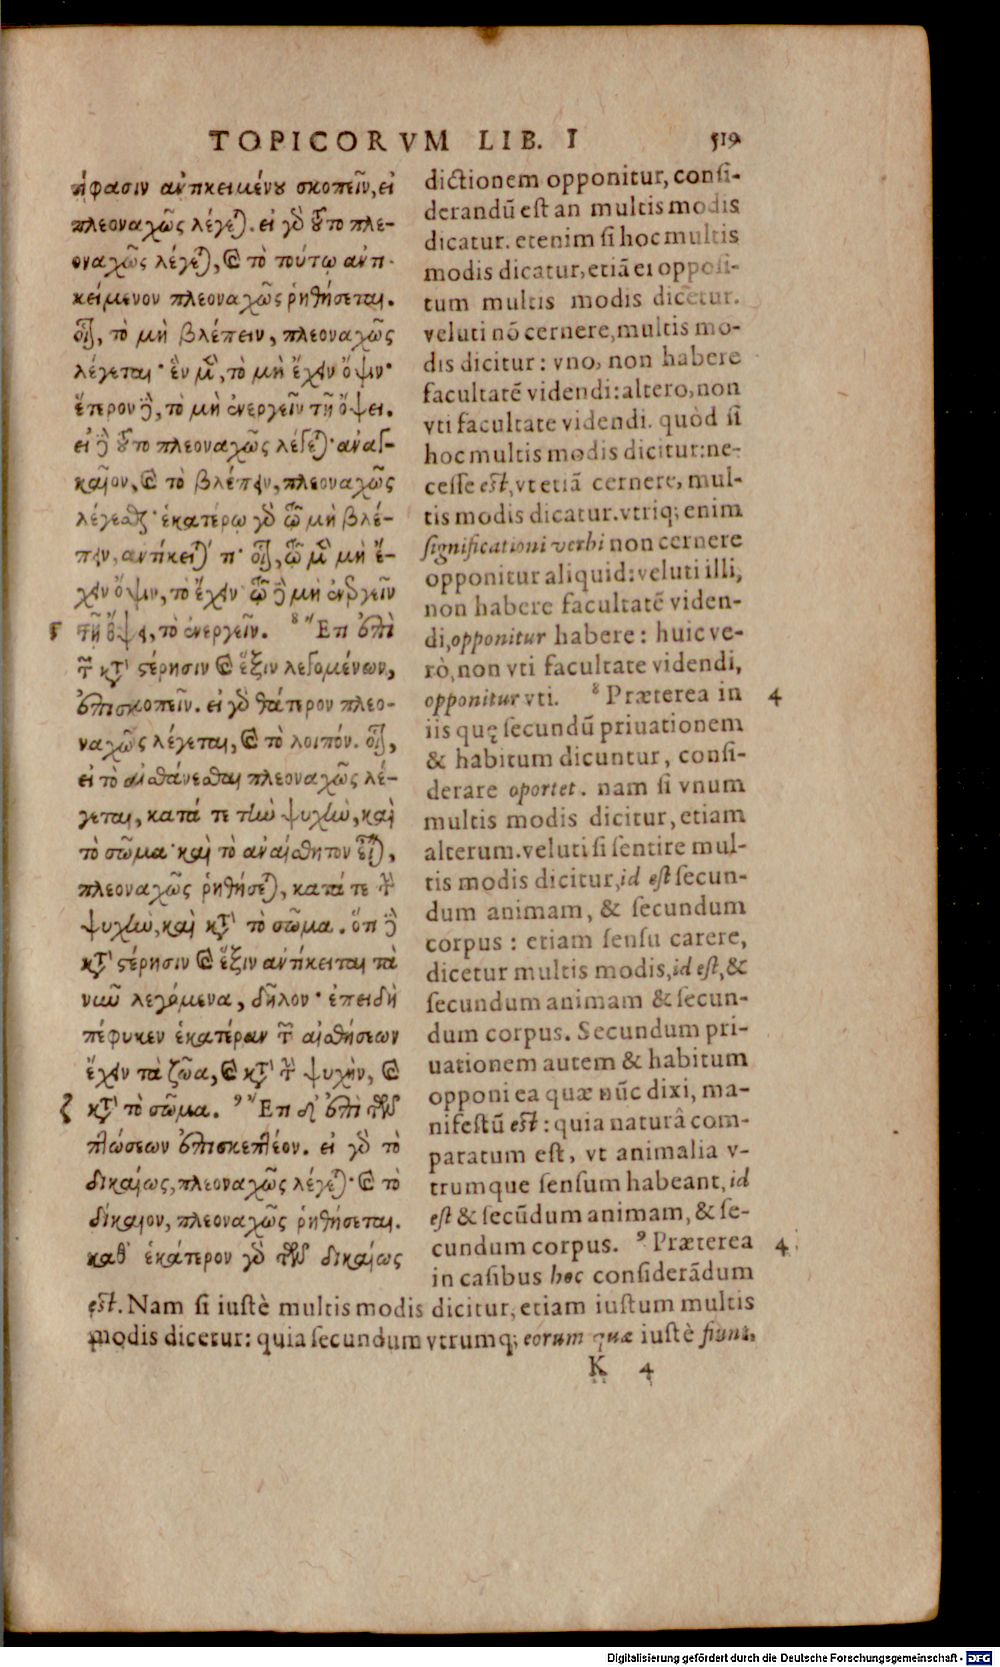 TOPICORVM LIB. I 519
τίφασιν ἀντικειμένου σκοπεῖν, εἰ
πλεοναχῶς λέγεται. εἰ γὰρ τοῦτο πλε-
οναχῶς λέγεται, καὶ τὸ τούτῳ ἀντι-
κείμενον πλεοναχῶς ῥηθήσεται.
οἷον, τὸ μὴ βλέπειν, πλεοναχῶς
λέγεται· ἓν μὲν, τὸ μὴ ἔχειν ὄψιν·
ἕτερον δὲ, τὸ μὴ ἐνεργεῖν τῇ ὄψει.
εἰ δὲ τοῦτο πλεοναχῶς λέγεται· ἀναγ-
καῖον, καὶ τὸ βλέπειν, πλεοναχῶς
λέγεσθαι· ἑκατέρῳ γὰρ τῷ μὴ βλέ-
πειν, ἀντίκειταί τι· οἷον, τῷ μὲν μὴ ἔ-
χειν ὄψιν, τὸ ἔχειν· τῷ δὲ μὴ ἐνεργεῖν
ϛ τῇ ὄψει, τὸ ἐνεργεῖν. 8 Ἔτι ἐπὶ
τῶν κατὰ στέρησιν καὶ ἕξιν λεγομένων,
ἐπισκοπεῖν. εἰ γὰρ θάτερον πλεο-
ναχῶς λέγεται, καὶ τὸ λοιπόν. οἷον,
εἰ τὸ αἰσθάνεσθαι πλεοναχῶς λέ-
γεται, κατά τε τὴν ψυχὴν, καὶ
τὸ σῶμα· καὶ τὸ ἀναίσθητον εἶναι,
πλεοναχῶς ῥηθήσεται, κατά τε τὴν
ψυχὴν, καὶ κατὰ τὸ σῶμα. ὅτι δὲ
κατὰ στέρησιν καὶ ἕξιν ἀντίκειται τὰ
νῦν λεγόμενα, δῆλον· ἐπειδὴ
πέφυκεν ἑκατέραν τῶν αἰσθήσεων
ἔχειν τὰ ζῶα, καὶ κατὰ τὴν ψυχὴν, καὶ
ζ κατὰ τὸ σῶμα. 9 Ἔτι δὲ ἐπὶ τῶν
πτώσεων ἐπισκεπτέον. εἰ γὰρ τὸ
δικαίως, πλεοναχῶς λέγεται· καὶ τὸ
δίκαιον, πλεοναχῶς ῥηθήσεται.
καθ' ἑκάτερον γὰρ τῶν δικαίως
dictionem opponitur, consi-
derandũ est an multis modis
dicatur. etenim si hoc multis
modis dicatur, etiã ei opposi-
tum multis modis dicetur.
veluti nõ cernere, multis mo-
dis dicitur: vno, non habere
facultatẽ videndi: altero, non
vti facultate videndi. quòd si
hoc multis modis dicitur: ne-
cesse est, vt etiã cernere, mul-
tis modis dicatur. vtriq; enim
significationi verbi non cernere
opponitur aliquid: veluti illi,
non habere facultatẽ viden-
di, opponitur habere: huic ve-
rò, non vti facultate videndi,
opponitur vti. 8 Præterea in 4
iis quę secundũ priuationem
& habitum dicuntur, consi-
derare oportet. nam si vnum
multis modis dicitur, etiam
alterum. veluti si sentire mul-
tis modis dicitur, id est secun-
dum animam, & secundum
corpus: etiam sensu carere,
dicetur multis modis, id est, &
secundum animam & secun-
dum corpus. Secundum pri-
uationem autem & habitum
opponi ea quæ nũc dixi, ma-
nifestũ est: quia naturâ com-
paratum est, vt animalia v-
trumque sensum habeant, id
est & secũdum animam, & se-
cundum corpus. 9 Præterea 4
in casibus hoc considerãdum
est. Nam si iustè multis modis dicitur, etiam iustum multis
modis dicetur: quia secundum vtrumq; eorum quæ iustè fiunt,
K 4
Digitalisierung gefördert durch die Deutsche Forschungsgemeinschaft - DFG